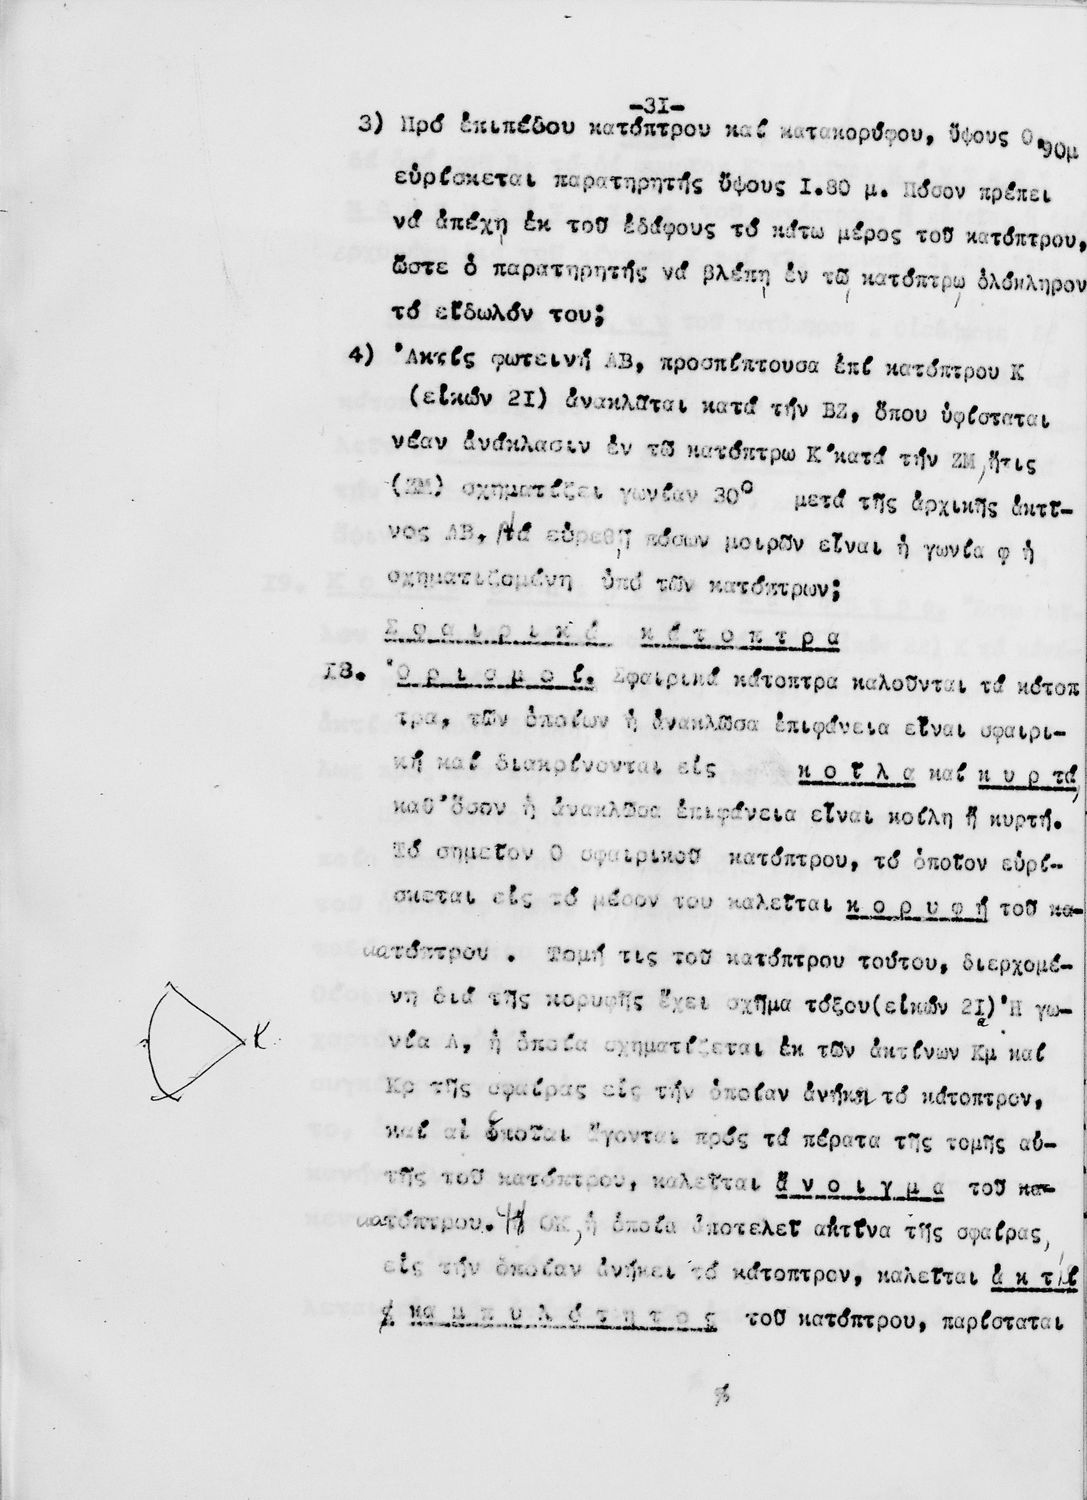 -31-
3) Πρό ἐπιπέδου κατόπτρου καί κατακορύφου, ὕψους 0.90μ
εὑρίσκεται παρατηρητής ὕψους 1.80 μ. Πόσον πρέπει
νά ἀπέχῃ ἐκ τοῦ ἐδάφους τό κάτω μέρος τοῦ κατόπτρου,
ὥστε ὁ παρατηρητής νά βλέπῃ ἐν τῷ κατόπτρῳ ὁλόκληρον
τό εἴδωλόν του;
4) Ἀκτίς φωτεινή ΑΒ, προσπίπτουσα ἐπί κατόπτρου Κ
(εἰκών 21) ἀνακλᾶται κατά τήν ΒΖ, ὅπου ὑφίσταται
νέαν ἀνάκλασιν ἐν τῶ κατόπτρω Κ'κατά τήν ΖΜ, ἥτις
(ΖΜ) σχηματίζει γωνίαν 30° μετά τῆς ἀρχικῆς ἀκτῖ-
νος ΑΒ. Νά εὑρεθῇ πόσων μοιρῶν εἶναι ἡ γωνία φ ἡ
σχηματιζομένη ὑπό τῶν κατόπτρων;
Σ φ α ι ρ ι κ ά κ ά τ ο π τ ρ α
18. Ὁ ρ ι σ μ ο ί. Σφαιρικά κάτοπτρα καλοῦνται τά κάτοπ
τρα, τῶν ὁποίων ἡ ἀνακλῶσα ἐπιφάνεια εἶναι σφαιρι-
κή καί διακρίνονται εἰς κ ο ῖ λ α καί κ υ ρ τά,
καθ'ὅσον ἡ ἀνακλῶσα ἐπιφάνεια εἶναι κοίλη ἤ κυρτή.
Τό σημεῖον Ο σφαιρικοῦ κατόπτρου, τό ὁποῖον εὑρί-
σκεται εἰς τό μέσον του καλεῖται κ ο ρ υ φ ή τοῦ κα-
κατόπτρου . Τομή τις τοῦ κατόπτρου τούτου, διερχομέ-
νη διά τῆς κορυφῆς ἔχει σχῆμα τόξου(εἰκών 21)Ἡ γω-
α
νία Α, ἡ ὁποία σχηματίζεται ἐκ τῶν ἀκτίνων Κμ καί
Κρ τῆς σφαίρας εἰς τήν ὁποίαν ἀνήκει τό κάτοπτρον,
καί αἱ ὁποῖαι ἄγονται πρός τά πέρατα τῆς τομῆς αὐ-
τῆς τοῦ κατόπτρου, καλεῖται ἄ ν ο ι γ μ α τοῦ κα-
κατόπτρου. Ἡ ΟΚ, ἡ ὁποία ἀποτελεῖ ἀκτῖνα τῆς σφαίρας,
εἰς τήν ὁποίαν ἀνήκει τό κάτοπτρον, καλεῖται ἀ κ τ ί
ς κα μ π υ λ ό τ η τ ο ς τοῦ κατόπτρου, παρίσταται
Κ